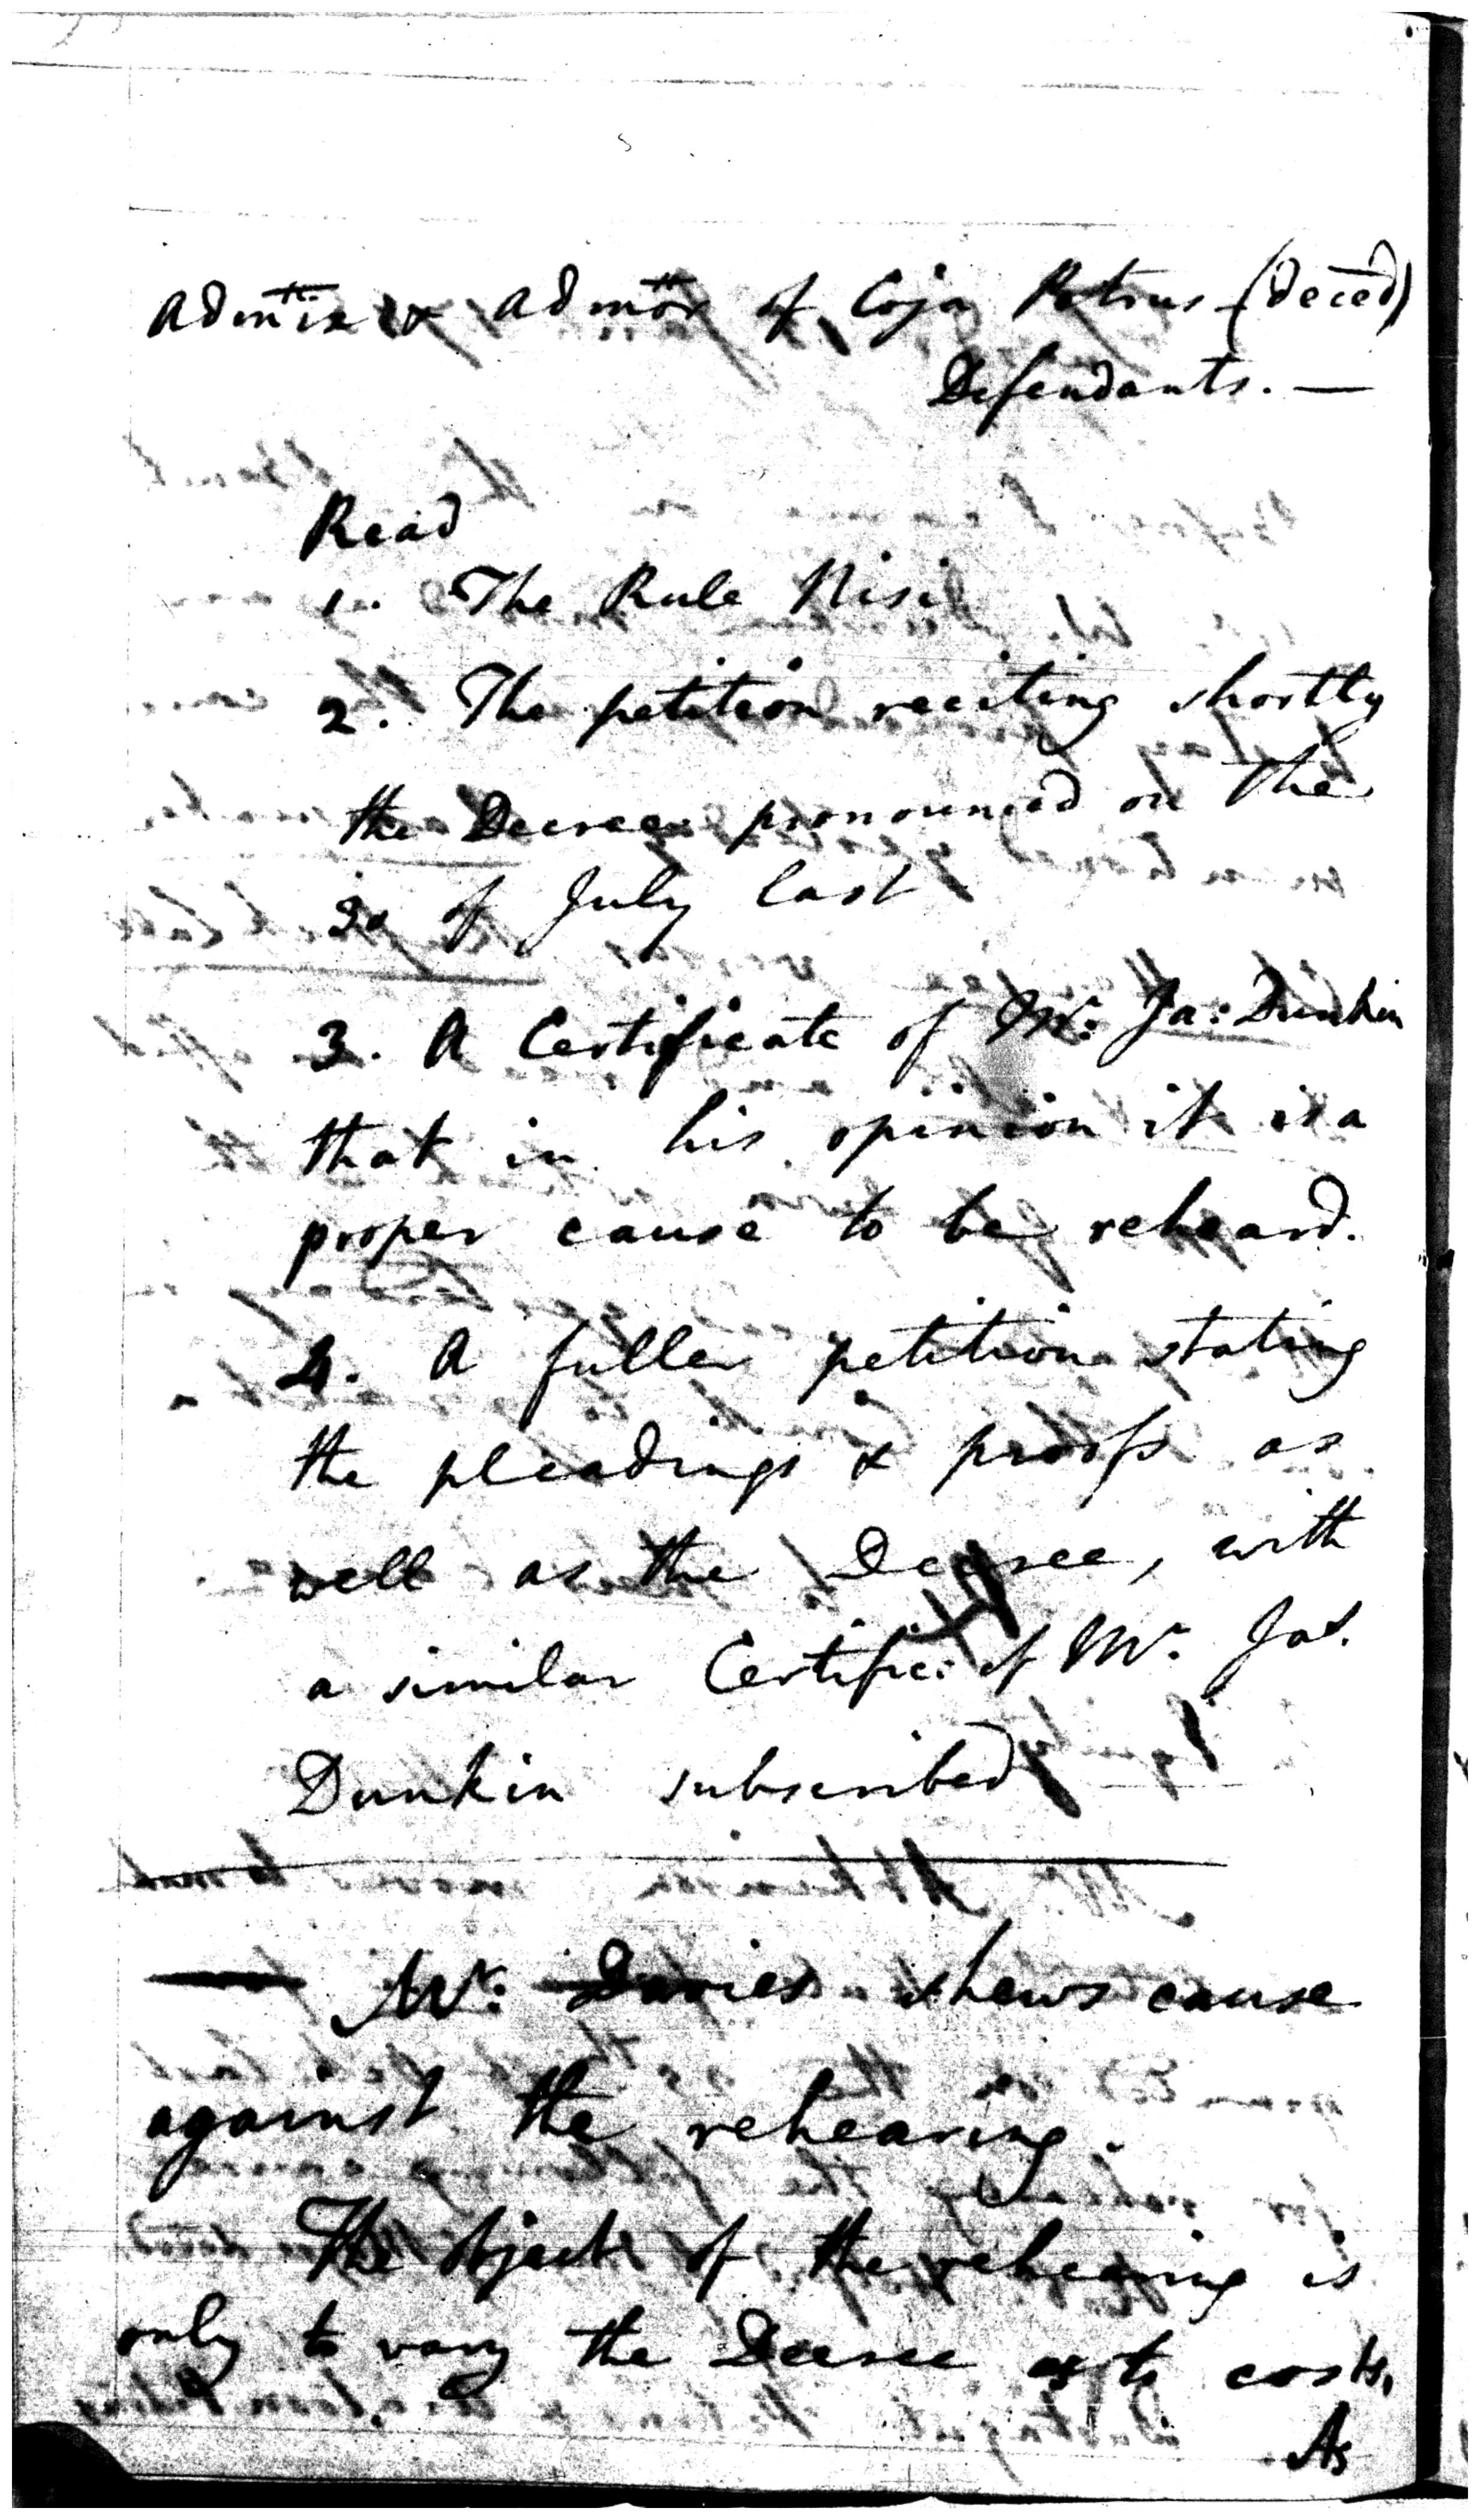 Admix & Admor of Coja Petrus (deced)
Defendants. —
Read
1. The Rule Nisi
2. The petition reciting shortly
the Decree pronounced on the
of July last
3. A Certificate of Mr: Ja: Dunkin
that in his opinion it is a
proper cause to be reheard.
4. A fuller petition stating
the pleadings & proofs as
well as the Decree, with
a similar Certific: of Mr. Jas.
Dunkin subscribed
Mr: Davies shews cause
against the rehearing.
The object of the rehearing is
only to vary the Decree as to costs.
As